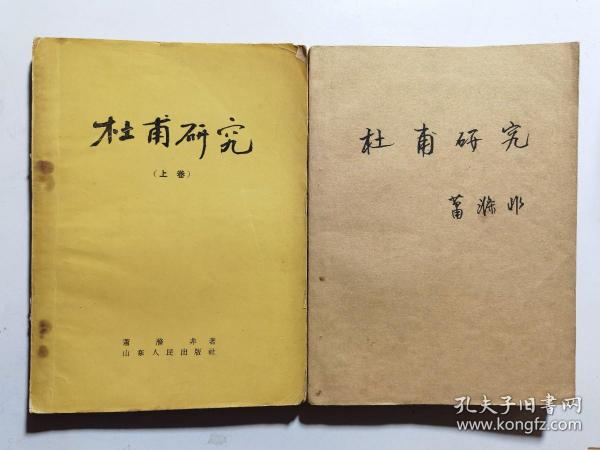 杜甫研究
（上卷）
蕭滌非著
山东人民出版社
杜甫研究
萧涤非
孔夫子旧书网
www.kongfz.com